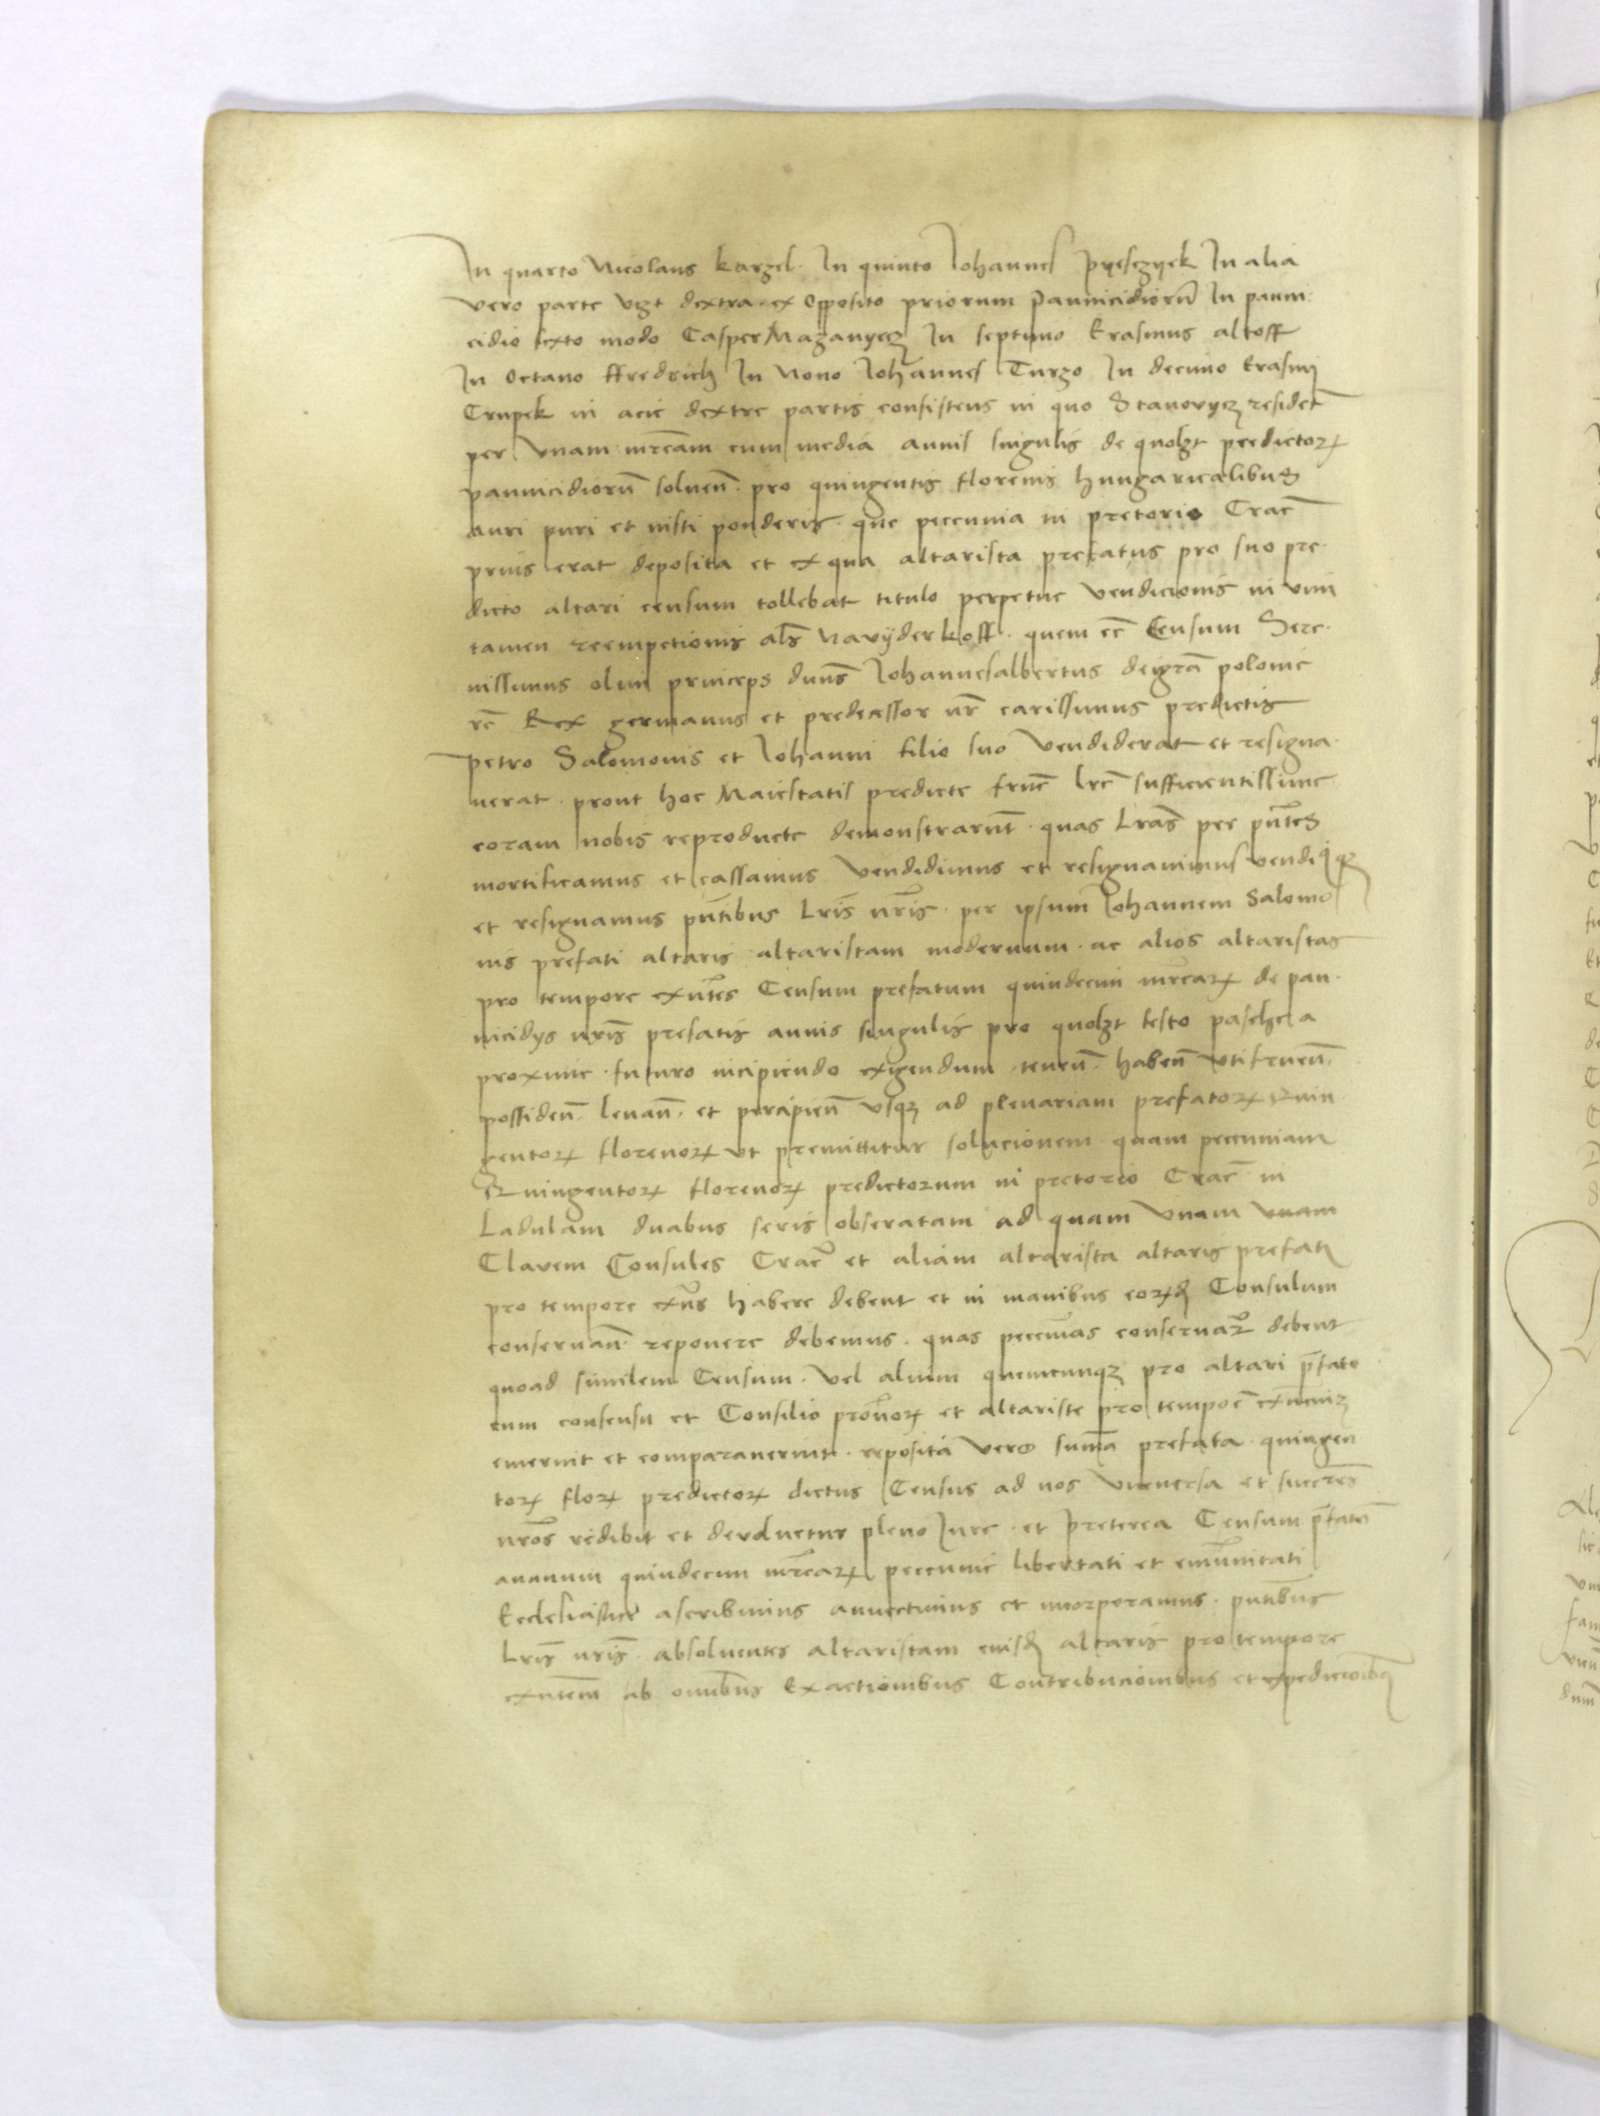 In quarto Nicolaus Kargel. In quinto Johannes Pyesczyek In alia
vero parte vzt dextra ex Opposito priorum Pannicidiorū In panni
cidio sexto modo Casper Maganyecz In septimo Erasmus altoff
In Octavo ffredrich In Nono Johannes Turzo In decimo Erasmi
Crupek in acie dextre partis consistens in quo Stanovycz residet
per vnam mrcam cum media annis singulis de quolzt predictorꝝ
pannicidiorū soluen̄. pro quingentis florenis hungaricalibus
auri puri et iusti ponderis. que peccunia in pretorio Crac̄
prius erat deposita et ex qua altarista prefatus pro suo pre
dicto altari censum tollebat titulo perpetue vendicionis in vim
tamen reempcionis al̄s Navyderkoff. quem ec̄ Censum Sere
nissimus olim princeps dūns Johannesalbertus dei gr̄a polonie
rē Rex germanus et predecessor nr̄ carissimus predictis
Petro Salomonis et Johanni filio suo vendiderat et resigna
uerat. prout hoc Maiestatis predicte fr̄ne lr̄e sufficientissime
coram nobis reproducte demonstrarūt. quas Lr̄as per pn̄tes
mortificamus et cassamus vendidimus et resignauimus vendiqꝫ
et resignamus pn̄tibus Lr̄is nr̄is. per ipsum Johannem Salomo
nis prefati altaris altaristam modernum. ac alios altaristas
pro tempore exn̄tes Censum prefatum quindecim mr̄carꝝ de pan
nicidys nr̄is prefatis annis singulis pro quolzt festo pasche a
proxime. futuro incipiendo exigendum. tenen̄. haben̄ vtifruen̄.
possiden̄. leuan̄. et percipien̄ vsqꝫ ad plenariam prefatorꝝ Quin
gentorꝝ florenorꝝ vt premittitur solucionem. quam peccuniam
Quingentorꝝ florenorꝝ predictorum in pretorio Crac̄ in
Ladulam duabus seris obseratam ad quam vnam vnam
Clavem Consules Crac̄ et aliam altarista altaris prefati
pro tempore exn̄s habere debent et in manibus eorꝝd Consulum
conseruan̄. reponere debemus. quas peccunias conseruare debent
quoad similem Censum. vel alium quemcunqꝫ pro altari p̄fato
cum consensu et Consilio prouisorꝝ et altariste pro tempoē exn̄
emerint et comparauerint. reposita vero sum̄a prefata. quingen
torꝝ florꝝ predictorꝝ dictus Census ad nos viceversa et succes̄res
nr̄os redibit et devoluetur pleno Jure. et preterea Censum p̄fatū
annuum quindecim mr̄carꝝ peccunie libertati et emunitati
Ecclesiastice ascribimus annectimus et incorporamus. pn̄tibus
Lr̄is nr̄is. absoluentes altaristam eiusd altaris pro tempore
exn̄tem ab omībus Exactionibus Contribucionibus et expedicioibꝫ